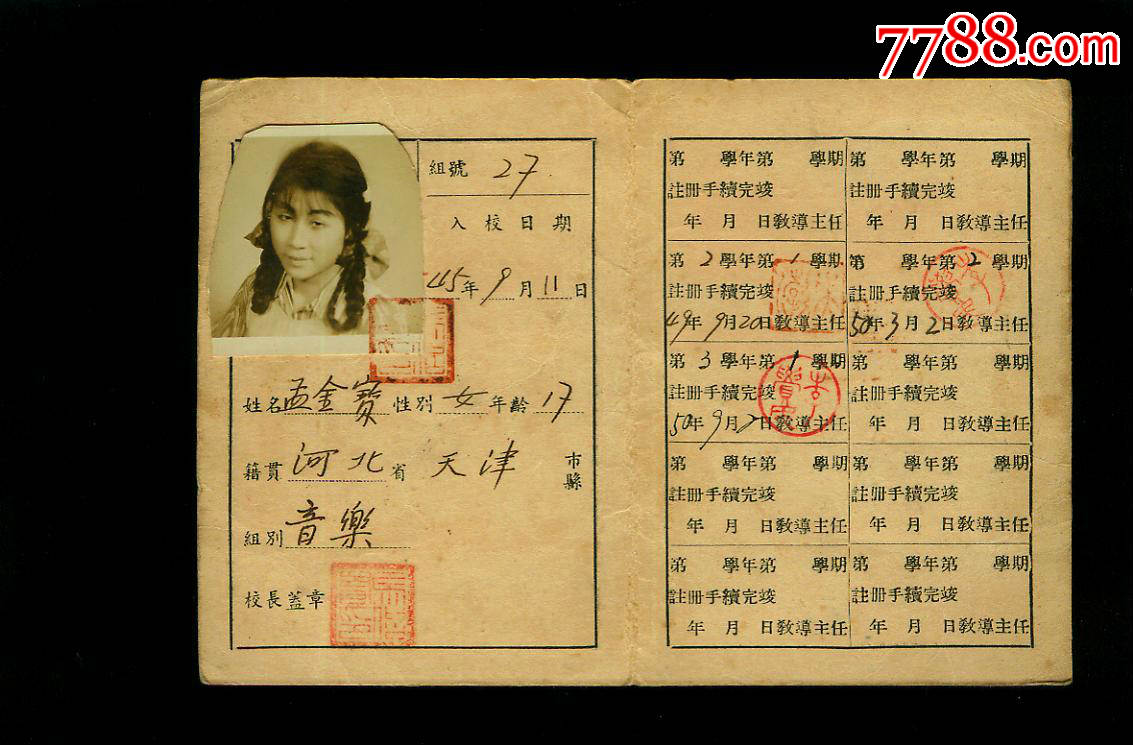 7788.com
組號 27
入校日期
45年9月11日
姓名孟金寶性別女年齡17
籍貫河北省天津市縣
組別音樂
校長蓋章
第 學年第 學期
註冊手續完竣
年 月 日教導主任
第 學年第 學期
註冊手續完竣
年 月 日教導主任
第2學年第1學期
註冊手續完竣
49年9月20日教導主任
第 學年第2學期
註冊手續完竣
50年3月2日教導主任
第3學年第1學期
註冊手續完竣
50年9月2日教導主任
第 學年第 學期
註冊手續完竣
年 月 日教導主任
第 學年第 學期
註冊手續完竣
年 月 日教導主任
第 學年第 學期
註冊手續完竣
年 月 日教導主任
第 學年第 學期
註冊手續完竣
年 月 日教導主任
第 學年第 學期
註冊手續完竣
年 月 日教導主任